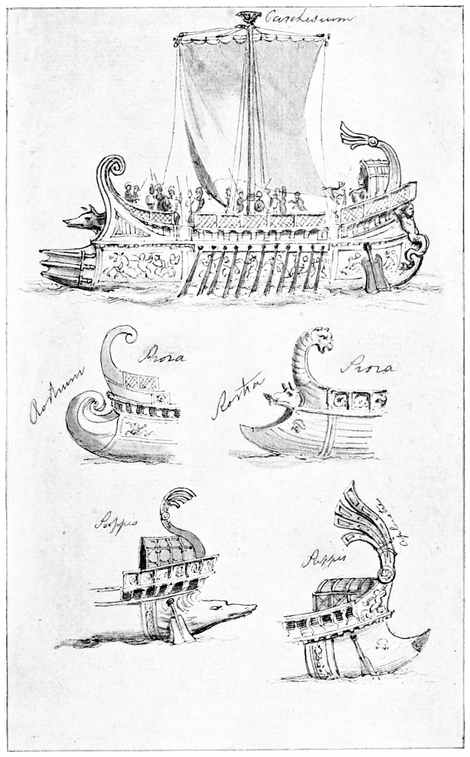 Carchesium
Rostrum
Prora
Rostra
Prora
Puppis
Puppis